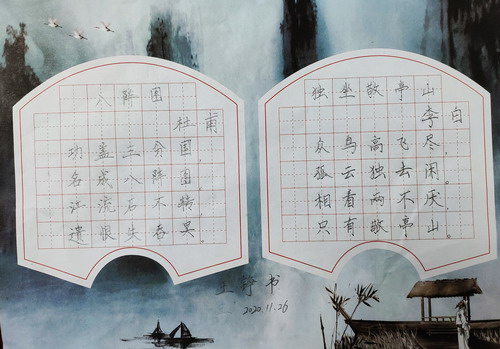 八阵图
杜甫
功盖三分国，
名成八阵图。
江流石不转，
遗恨失吞吴。
独坐敬亭山
李白
众鸟高飞尽，
孤云独去闲。
相看两不厌，
只有敬亭山。
书
2020.11.26